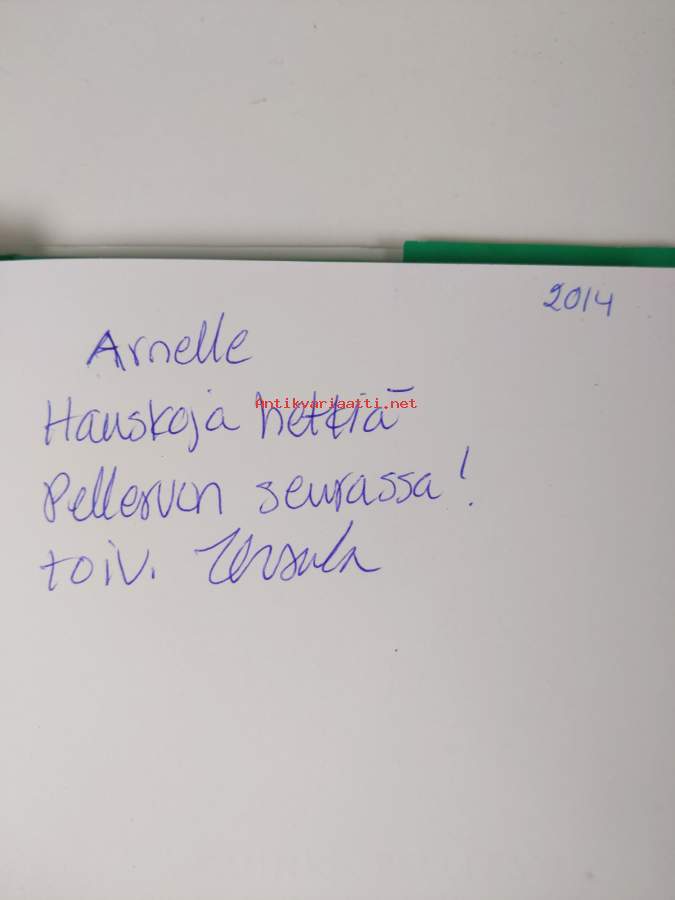 2014
Arnelle
Hauskoja hetkiä
Antikvariaatti.net
Pellervon seurassa!
toiv. Ursula